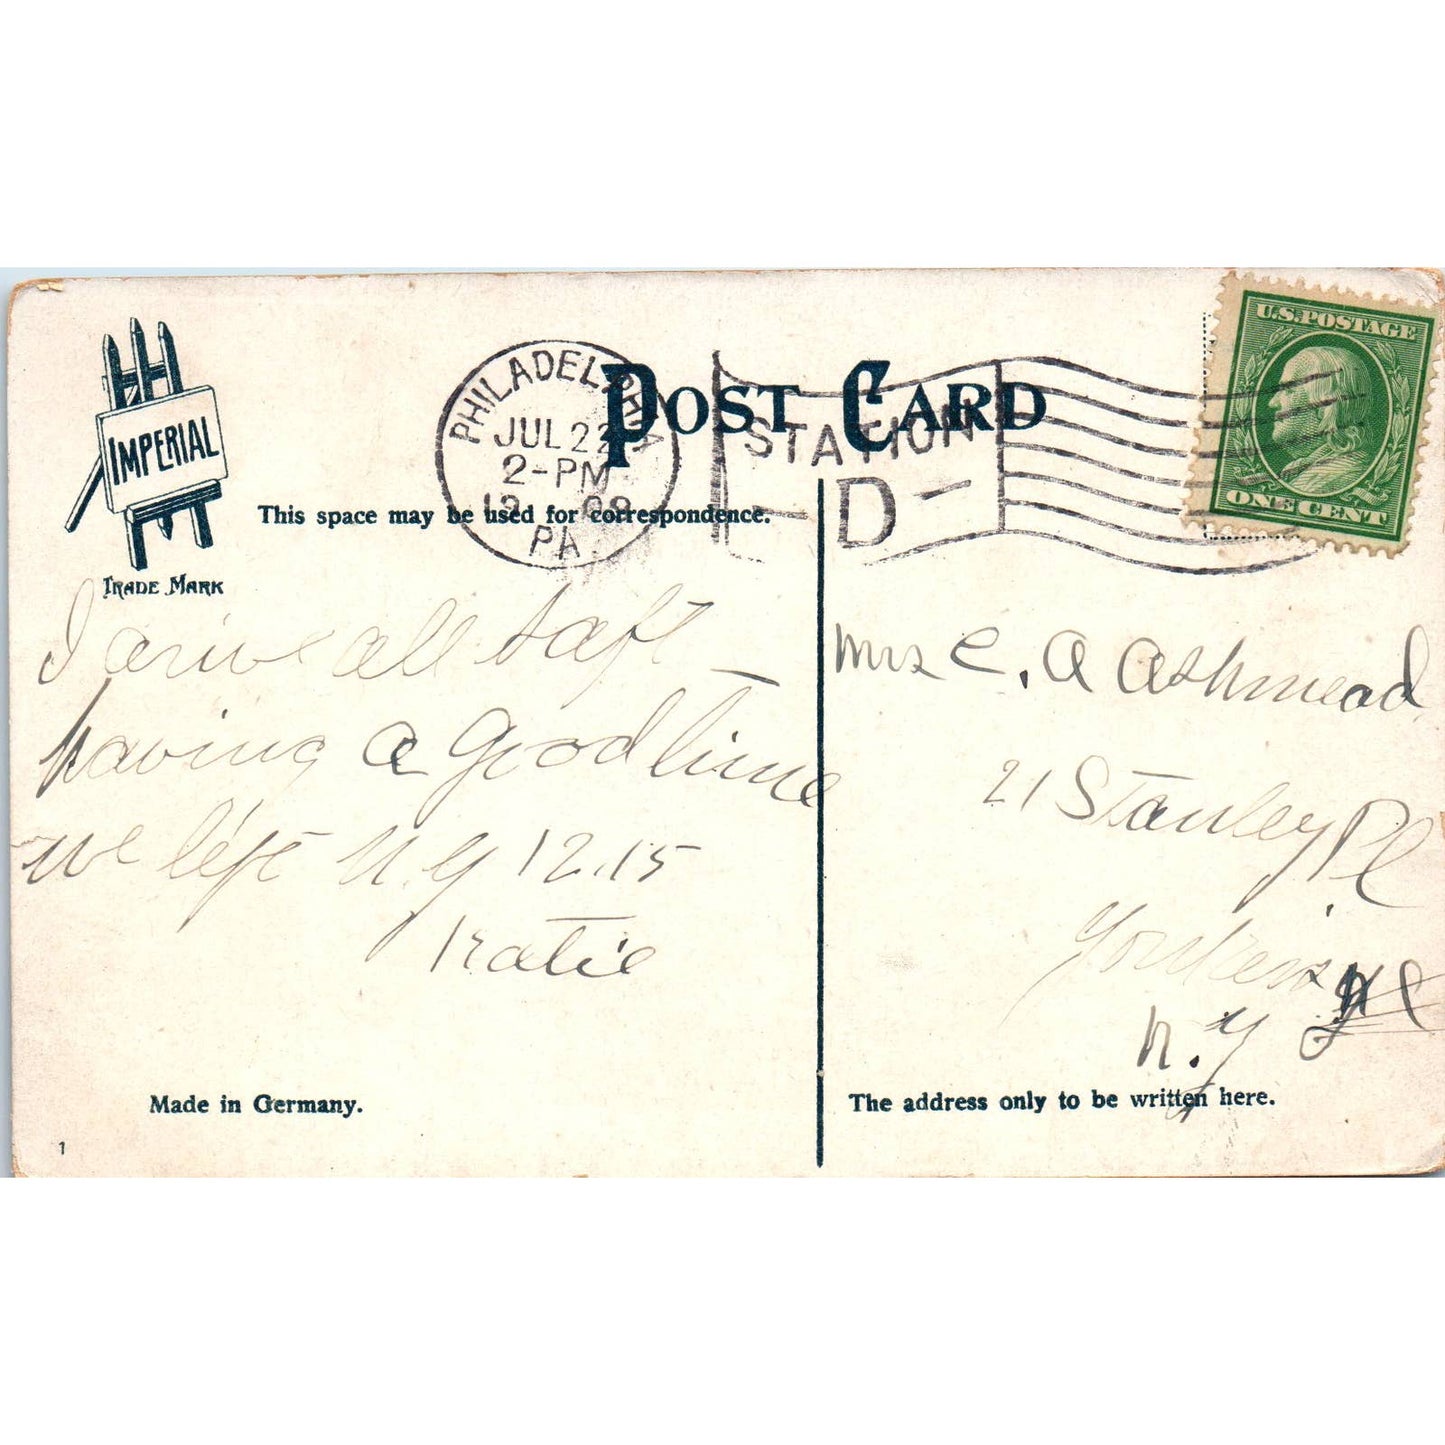 POST CARD
IMPERIAL
TRADE MARK
PHILADELPHIA
JUL 22
2-PM
PA.
STATION
D
U.S. POSTAGE
ONE CENT
This space may be used for correspondence.
I arive all saft
having a good time
we left N.Y 12.15
Katie
Mrs C. A Ashmead
21 Stanley Pl
Yonkers
N.Y
Made in Germany.
The address only to be written here.
1